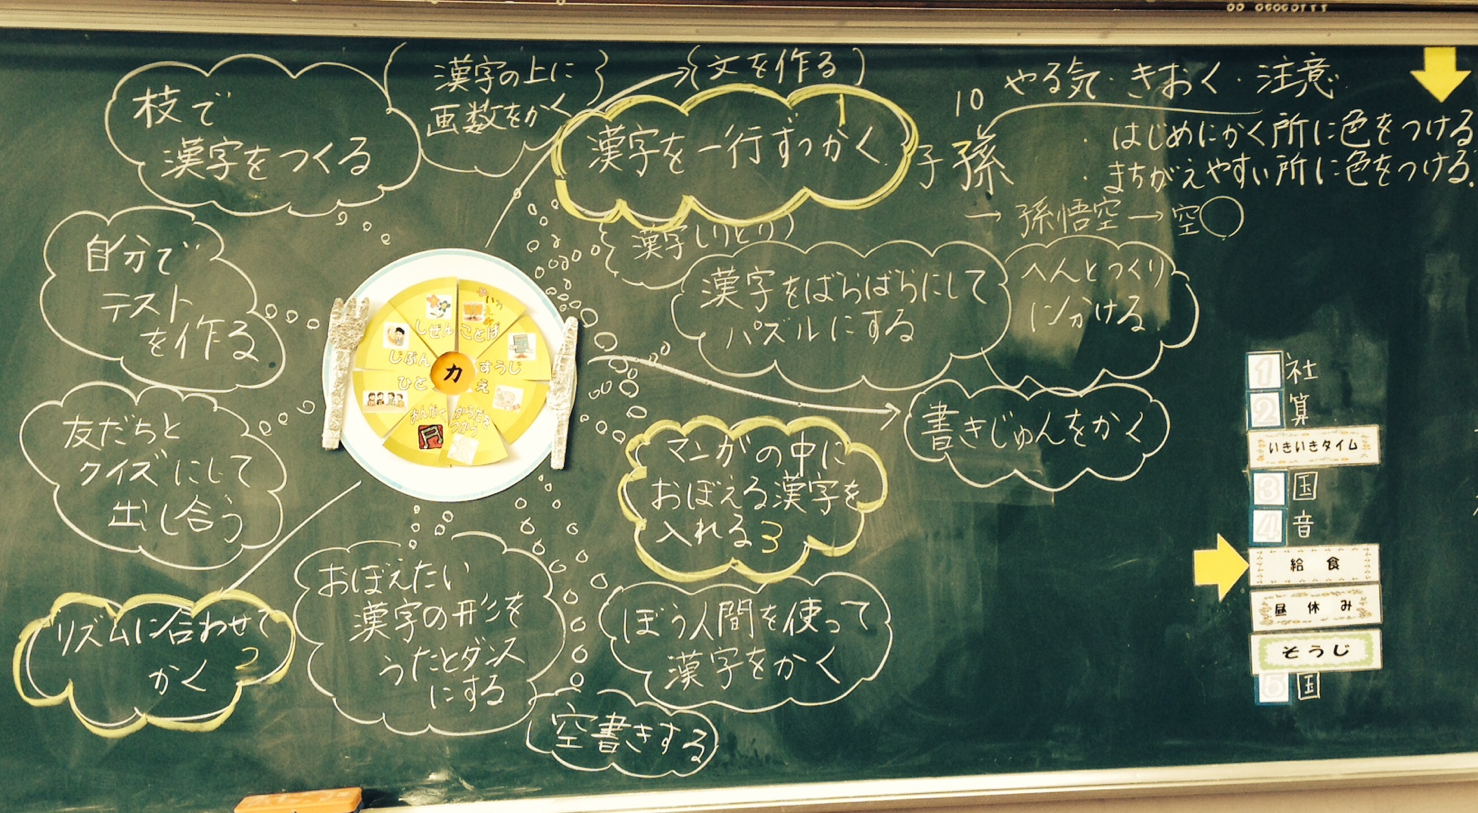 枝で
漢字をつくる
漢字の上に
画数をかく
文を作る
漢字を一行ずつかく
1
やる気・きおく・注意
10
子 孫
・はじめにかく所に色をつける
・まちがえやすい所に色をつける
→ 孫悟空 → 空○
漢字しりとり
漢字をばらばらにして
パズルにする
へんとつくり
に分ける
書きじゅんをかく
自分で
テスト
を作る
友だちと
クイズにして
出し合う
しぜん
ことば
すうじ
え
ひと
じぶん
力
マンガの中に
おぼえる漢字を
入れる3
リズムに合わせて
かく 2
おぼえたい
漢字の形を
うたとダンス
にする
ぼう人間を使って
漢字をかく
空書きする
1 社
2 算
いきいきタイム
3 国
4 音
給食
昼休み
そうじ
5 国